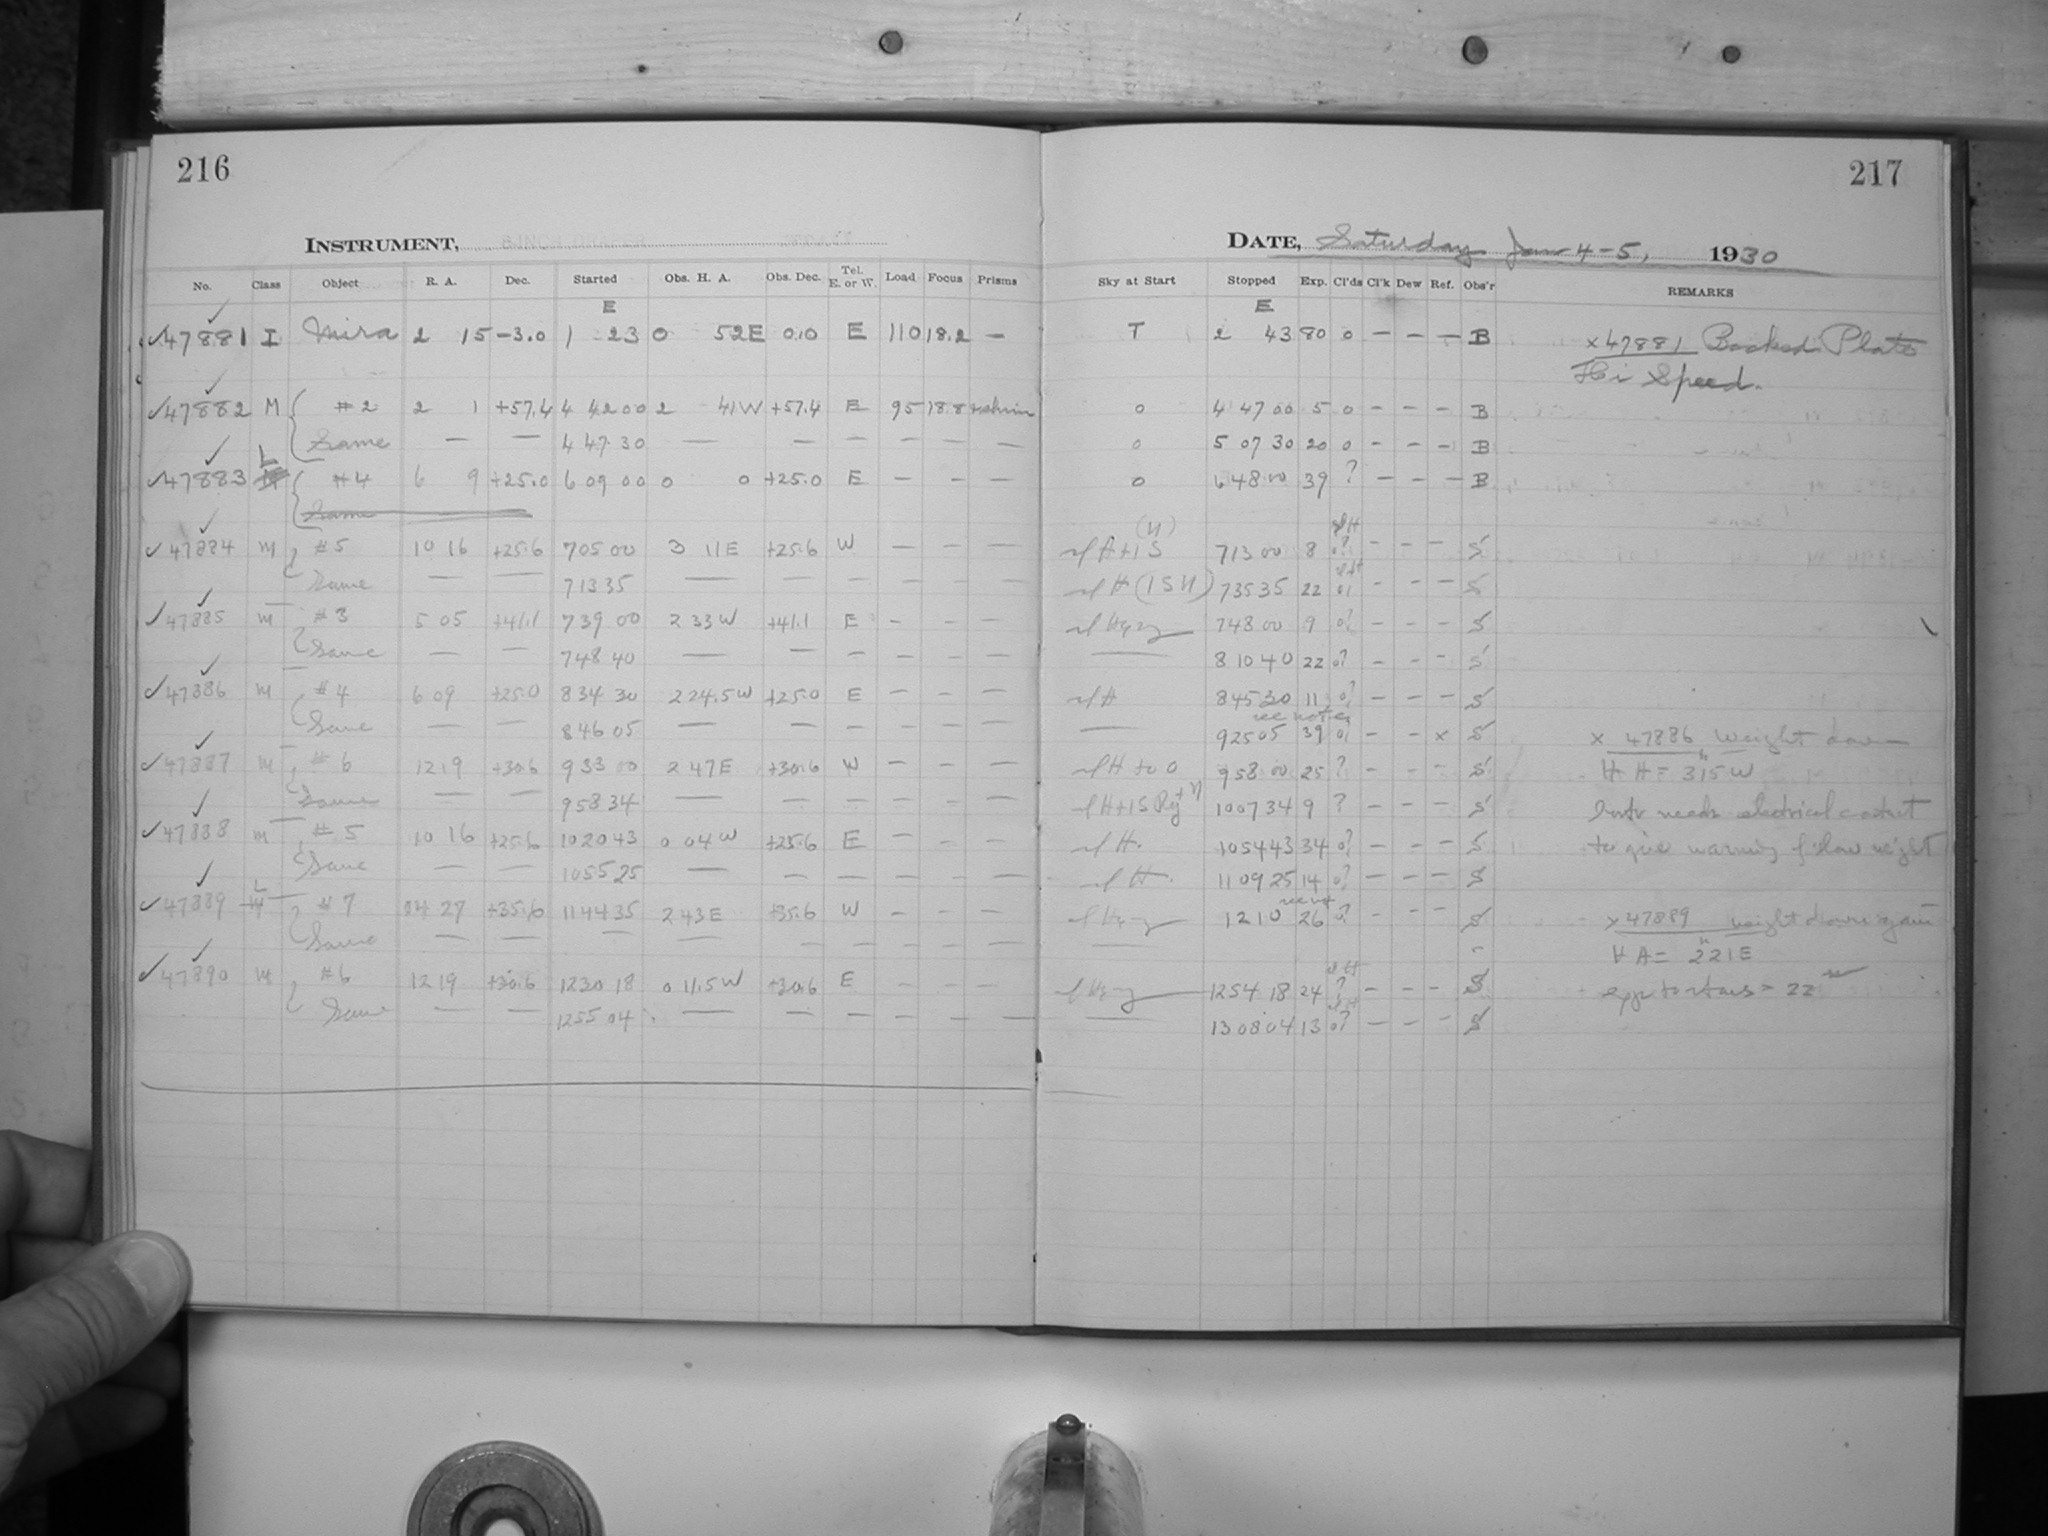 216
INSTRUMENT,
No. Class Object R. A. Dec. Started Obs. H. A. Obs. Dec. Tel. E. or W. Load Focus Prisms
E
✓47881 I Mira 2 15 -3.0 1 23 0 52E 0.0 E 110 18.2 —
✓47882 M #2 2 1 +57.4 4 42 00 2 41W +57.4 E 95 18.8
Same — — 4 47 30 — — — — — —
L
✓47883 #4 6 9 +25.0 6 09 00 0 0 +25.0 E — — —
Same
✓47884 M #5 10 16 +25.6 7 05 00 3 11E +25.6 W — — —
Same — — 7 13 35 — — — — — —
✓47885 M #3 5 05 +41.1 7 39 00 2 33W +41.1 E — — —
Same — — 7 48 40 — — — — — —
✓47886 M #4 6 09 +25.0 8 34 30 2 24.5W +25.0 E — — —
Same — — 8 46 05 — — — — — —
✓47887 M #6 12 19 +30.6 9 33 00 2 47E +30.6 W — — —
Same — — 9 58 34 — — — — — —
✓47888 M #5 10 16 +25.6 10 20 43 0 04W +25.6 E — — —
Same — — 10 55 25 — — — — — —
L
✓47889 M #7 14 27 +35.6 11 44 35 2 43E +35.6 W — — —
Same — — — — — — — — —
✓47890 M #6 12 19 +30.6 12 30 18 0 11.5W +30.6 E — — —
Same — — 12 55 04 — — — — — —
217
DATE, Saturday Jan 4-5, 1930
Sky at Start Stopped Exp. Cl'ds Cl'k Dew Ref. Obs'r REMARKS
E
T 2 43 80 0 — — — B x 47881 Backed Plate
Hi Speed.
0 4 47 00 5 0 — — — B
0 5 07 30 20 0 — — — B
0 6 48 00 39 ? — — — B
(N)
H+1S 7 13 00 8 0? — — — S
H (1SN) 7 35 35 22 — — — S
7 48 00 9 0? — — — S
— 8 10 40 22 0? — — — S
H 8 45 30 11 0? — — — S
see notes
— 9 25 05 39 — — x S x 47886 Weight down
H to 0 9 58 00 25 ? — — — S H A = 3 15 W
H+1S 10 07 34 9 ? — — — S Instr needs electrical contact
H. 10 54 43 34 0? — — — S to give warning of low weight
H. 11 09 25 14 0? — — — S
12 10 26 0? — — — S x 47889 weight down again
— HA = 2 21E
12 54 18 24 ? — — — S exp to stars = 22
— 13 08 04 13 0? — — — S